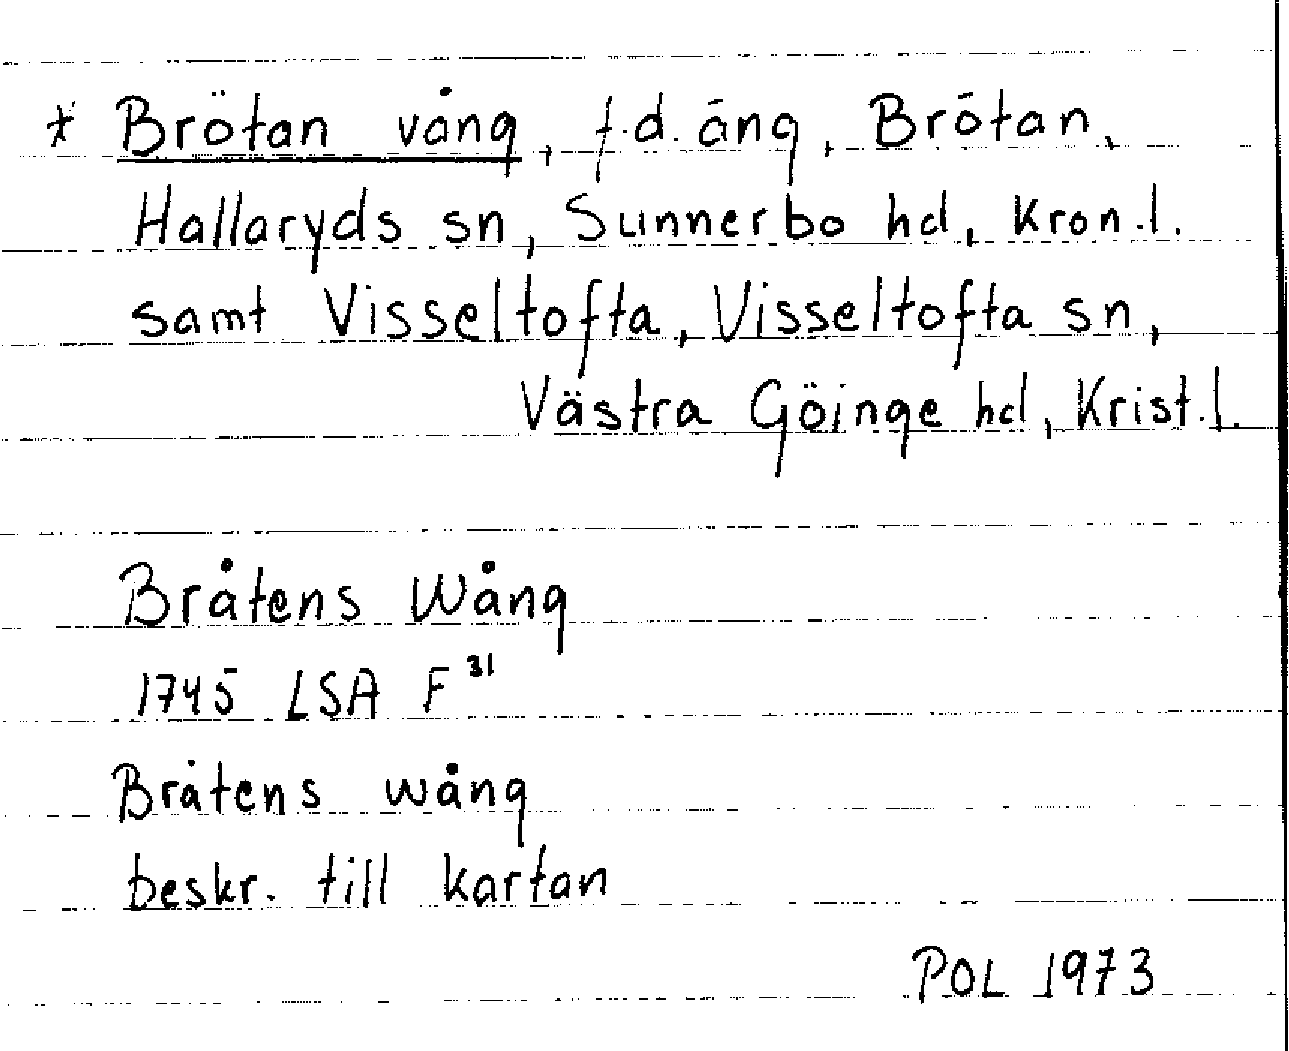 * Brötan vång, f.d. äng, Brötan,
Hallaryds sn, Sunnerbo hd, Kron.l.
samt Visseltofta, Visseltofta sn,
Västra Göinge hd, Krist.l.
Bråtens Wång
1745 LSA F 31
Bråtens wång
beskr. till kartan
POL 1973